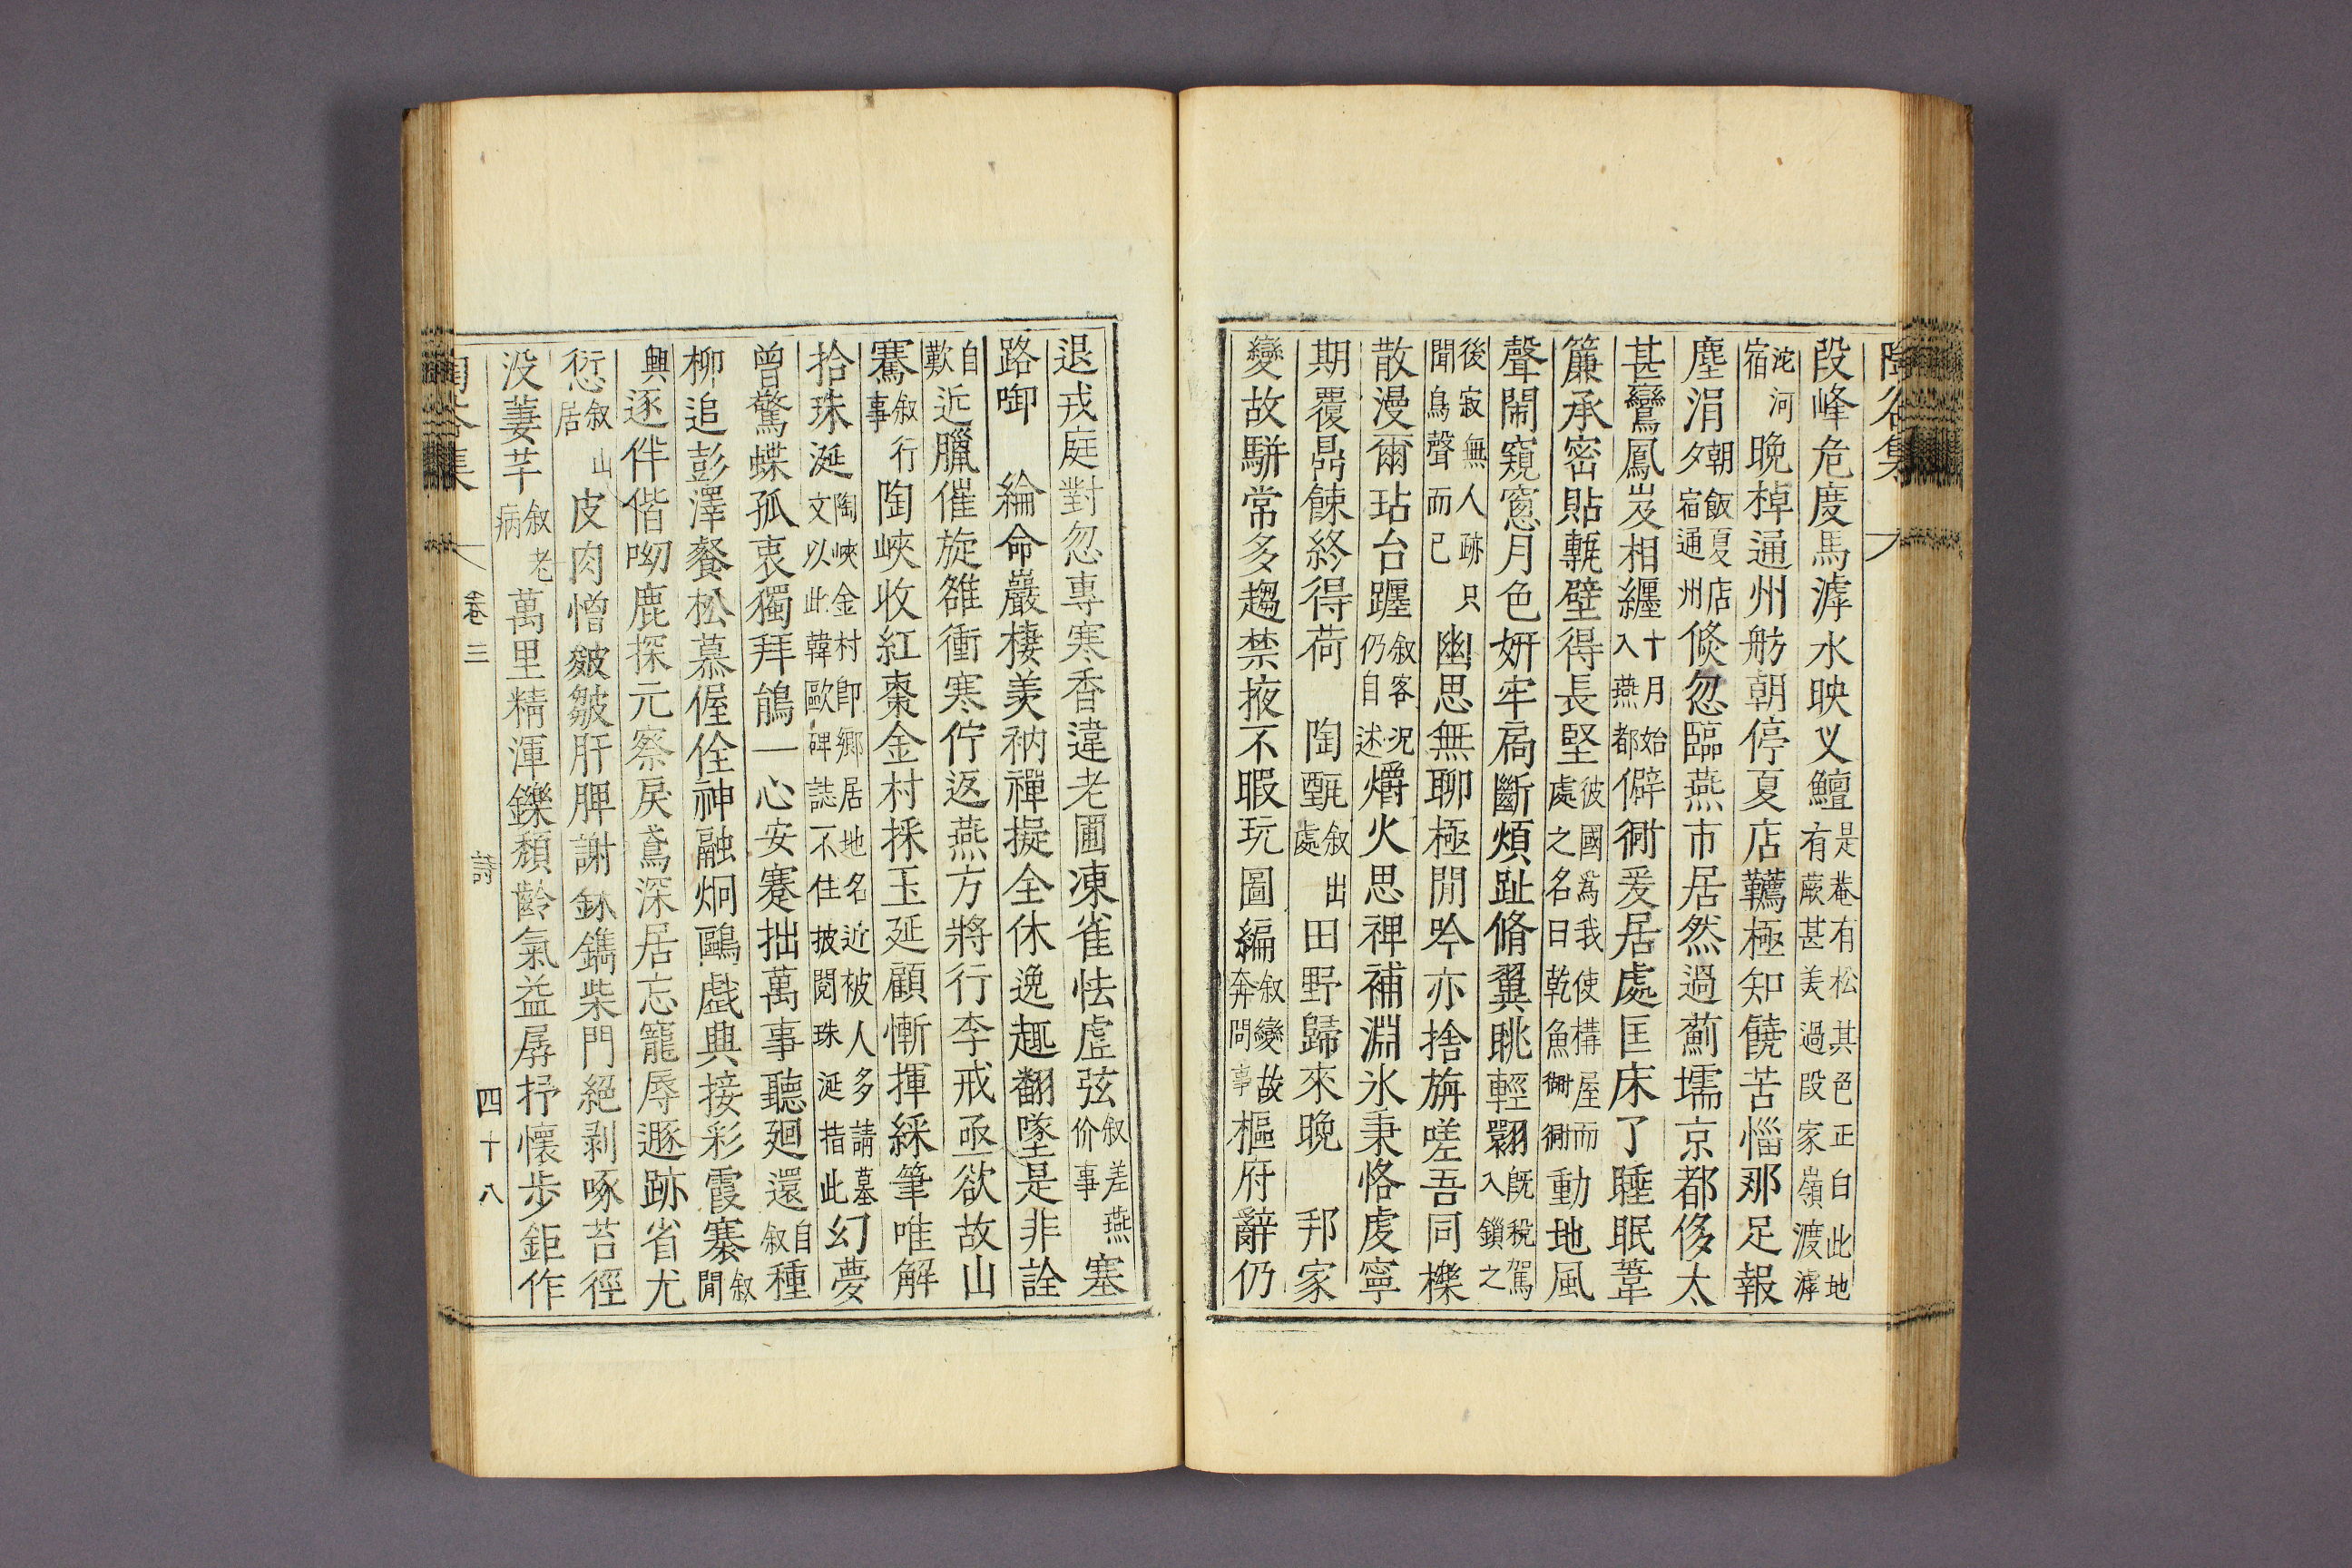 陶谷集
段峰危度馬滹水映叉鱣是菴有松其色正白此地有蕨甚美過段家嶺渡滹
沱河宿晚棹通州舫朝停夏店韉極知饒苦惱那足報
塵涓朝飯夏店夕宿通州倐忽臨燕市居然過薊壖京都侈太
甚鸞鳳岌相纏十月始入燕都僻衕爰居處匡床了睡眠葦
簾承密貼甎壁得長堅彼國爲我使構屋而處之名曰乾魚衚衕動地風
聲鬧窺窻月色姸牢扃斷煩趾脩翼眺輕翾旣稅駕入鎖之
後寂無人跡只聞鳥聲而已幽思無聊極閒吟亦捨旃嗟吾同櫟
散漫爾玷台躔叙客况仍自述爝火思裨補淵氷秉恪虔寧
期覆鼎餗終得荷 陶甄叙出處田野歸來晚 邦家
變故駢常多趨禁掖不暇玩圖編叙變故奔問事樞府辭仍
退戎庭對忽專寒香違老圃凍雀怯虛弦叙差燕价事塞
路啣 綸命巖棲羡衲禪擬全休逸趣翻墜是非詮
自歎近臘催旋雒衝寒佇返燕方將行李戒亟欲故山
騫叙行事陶峽收紅棗金村採玉延顧慚揮綵筆唯解
拾珠涎陶峽金村卽鄉居地名近被人多請墓文以此韓歐碑誌不住披閱珠涎指此幻夢
曾驚蝶孤衷獨拜鵑一心安蹇拙萬事聽廻還自叙種
柳追彭澤餐松慕偓佺神融炯鷗戲典接彩霞褰叙閒
興逐伴偕呦鹿探元察戾鳶深居忘寵辱遯跡省尤
愆叙山居皮肉憎皴皺肝脾謝鉥鐫柴門絕剥啄苔徑
没萋芊叙老病萬里精渾鑠頹齡氣益孱抒懷步鉅作
陶谷集 卷三 詩 四十八